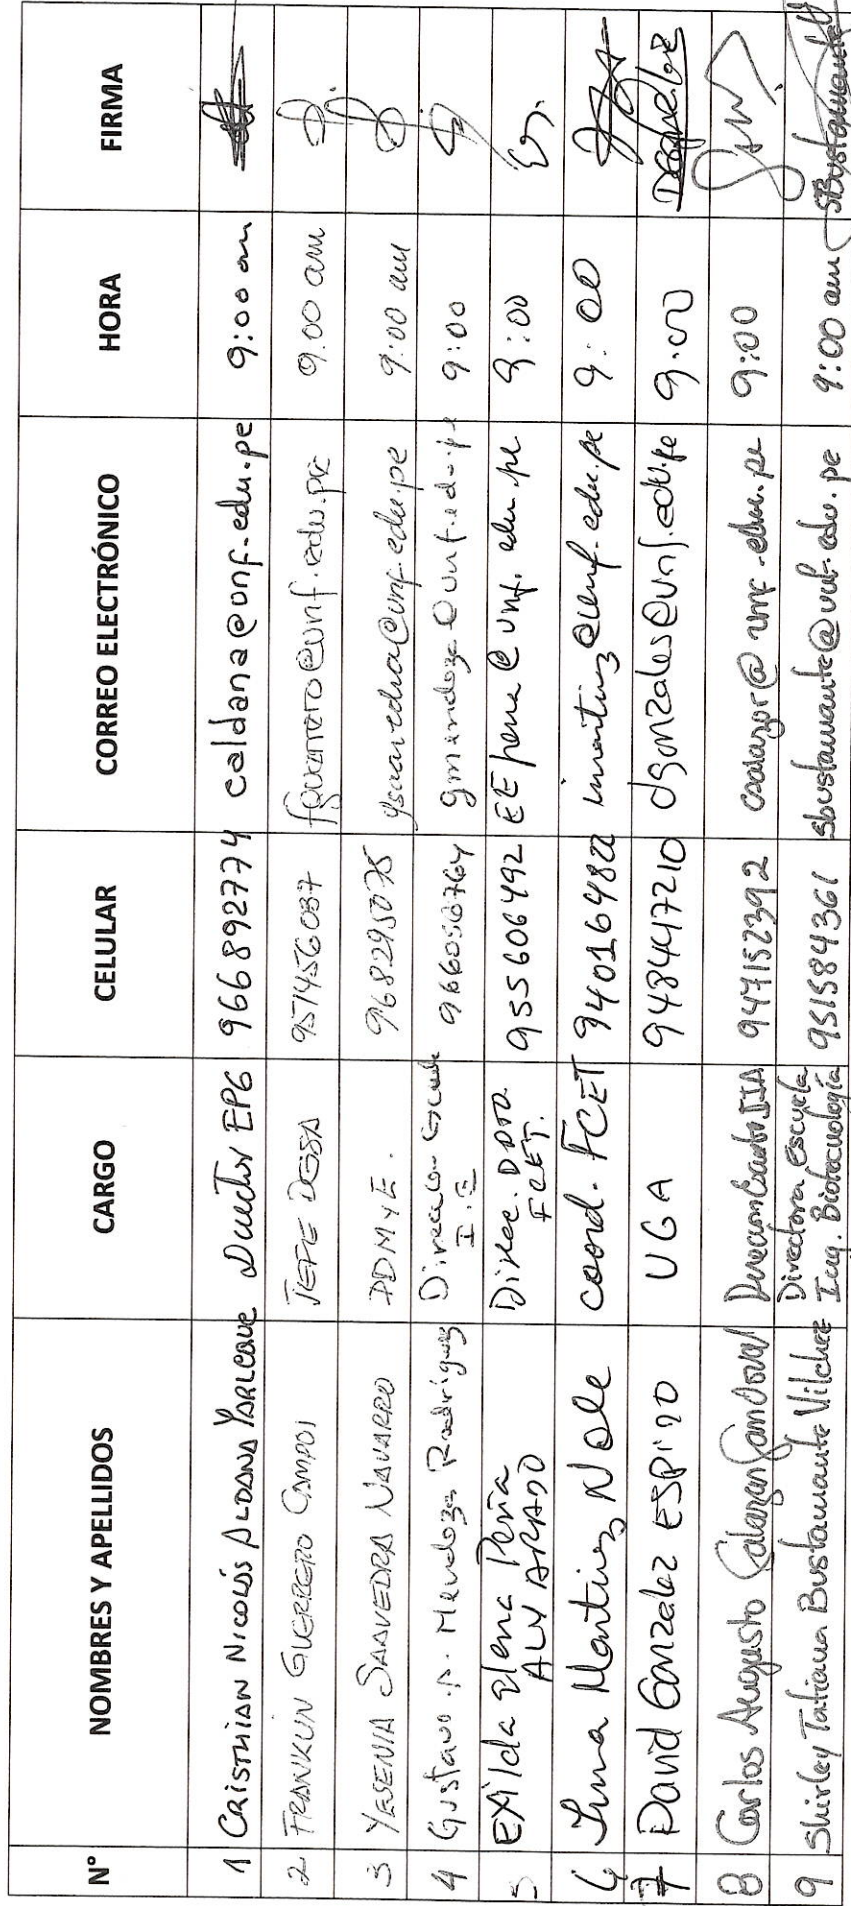 N° NOMBRES Y APELLIDOS CARGO CELULAR CORREO ELECTRÓNICO HORA FIRMA
1 CRISTHIAN NICOLÁS ALDANA YARLEQUE Director EPG 966892774 caldana@unf.edu.pe 9:00 am
2 FRANKLIN GUERRERO CAMPOS JEFE DGSA 951456037 fguerrero@unf.edu.pe 9:00 am
3 YESENIA SAAVEDRA NAVARRO PDMYE. 968295075 ysaavedra@unf.edu.pe 9:00 am
4 Gustavo Mendoza Rodríguez I.E 966056764 gmendoza@unf.edu.pe 9:00
5 EXilda Elena Peña
ALVARADO Direc. DPTO.
FCET. 955606492 EEpena@unf.edu.pe 9:00
6 Irma Martinez Nole coord. FCET 940164982 imartinez@unf.edu.pe 9:00
7 David Gonzalez ESPINO UGA 948447210 dgonzales@unf.edu.pe 9:00
8 Carlos Augusto Salazar Sandoval IIA 947152392 csalazar@unf.edu.pe 9:00
9 Shirley Tatiana Bustamante Vilchez Directora Escuela
Ing. Biotecnología 951584361 sbustamante@unf.edu.pe 9:00 am SBustamanteV